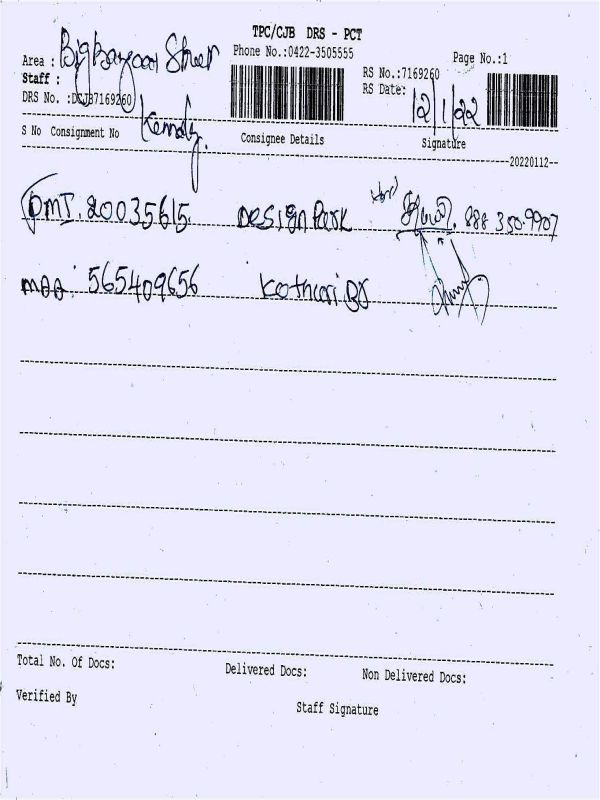 TPC/CJB DRS - PCT
Phone No.:0422-3505555
Page No.:1
Area : Big Bazaar Street
Staff :
RS No.:7169260
RS Date: 12/1/22
DRS No. :DCJB7169260
S No Consignment No Consignee Details Signature
20220112
PMT. 20035615. Design Park 888 350.9907
MAA: 565409656 Kothari
Total No. Of Docs: Delivered Docs: Non Delivered Docs:
Verified By Staff Signature